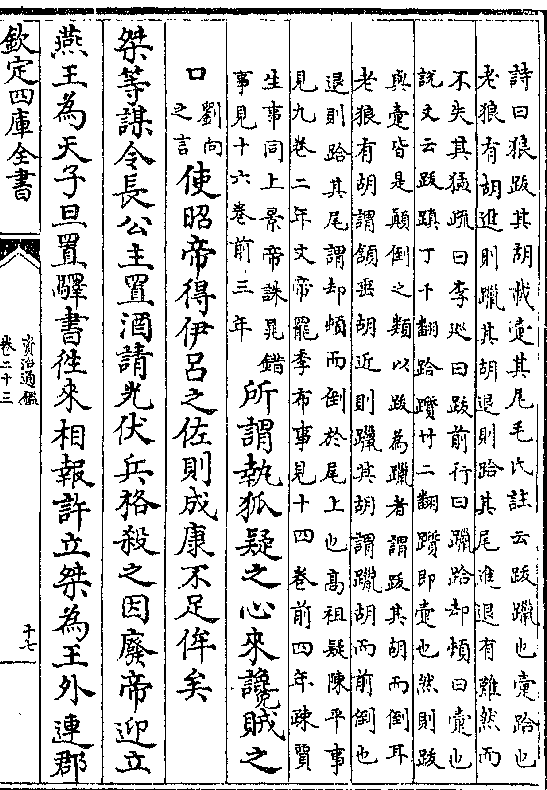 詩曰狼跋其胡載疐其尾毛氏註云跋躐也疐跲也
老狼有胡進則躐其胡退則跲其尾進退有難然而
不失其猛疏曰李廵曰跋前行曰躐跲却頓曰疐也
説文云跋蹎丁千翻跲躓竹二翻躓即疐也然則跋
與疐皆是顛倒之類以跋為躐者謂跋其胡而倒耳
老狼有胡謂頷垂胡近則躐其胡謂躐胡而前倒也
退則跲其尾謂却頓而倒於尾上也髙祖疑陳平事
見九卷二年文帝罷季布事見十四卷前四年疎賈
生事同上景帝誅鼂錯
事見十六卷前三年
所謂執狐疑之心來讒賊之
口
劉向
之言
使昭帝得伊吕之佐則成康不足侔矣
桀等謀令長公主置酒請光伏兵格殺之因廢帝迎立
燕王為天子旦置驛書徃來相報許立桀為王外連郡
欽定四庫全書
資治通鑑
卷二十三
十七